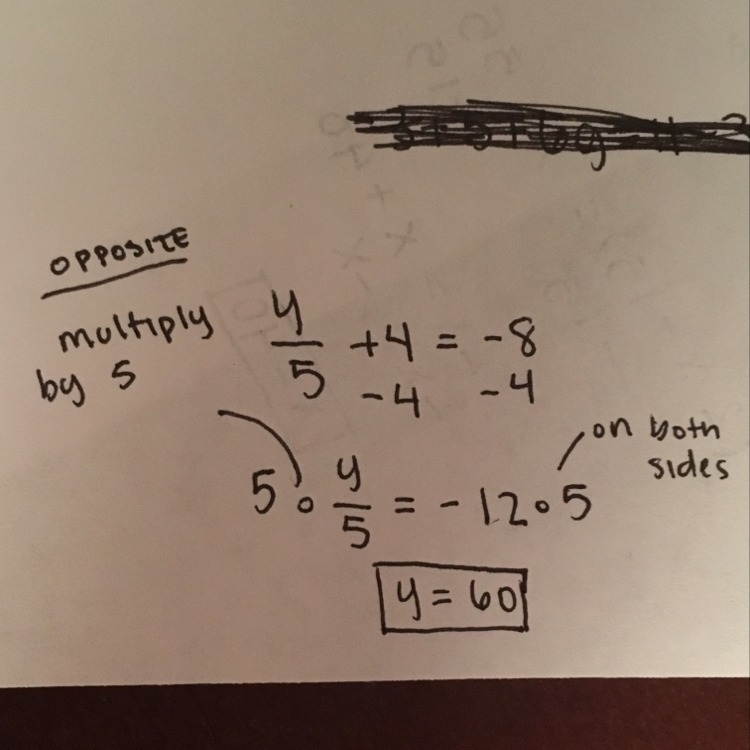 OPPOSITE
multiply
by 5
y/5 + 4 = -8
-4 -4
5 ∘ y/5 = -12 ∘ 5
on both
sides
y = 60